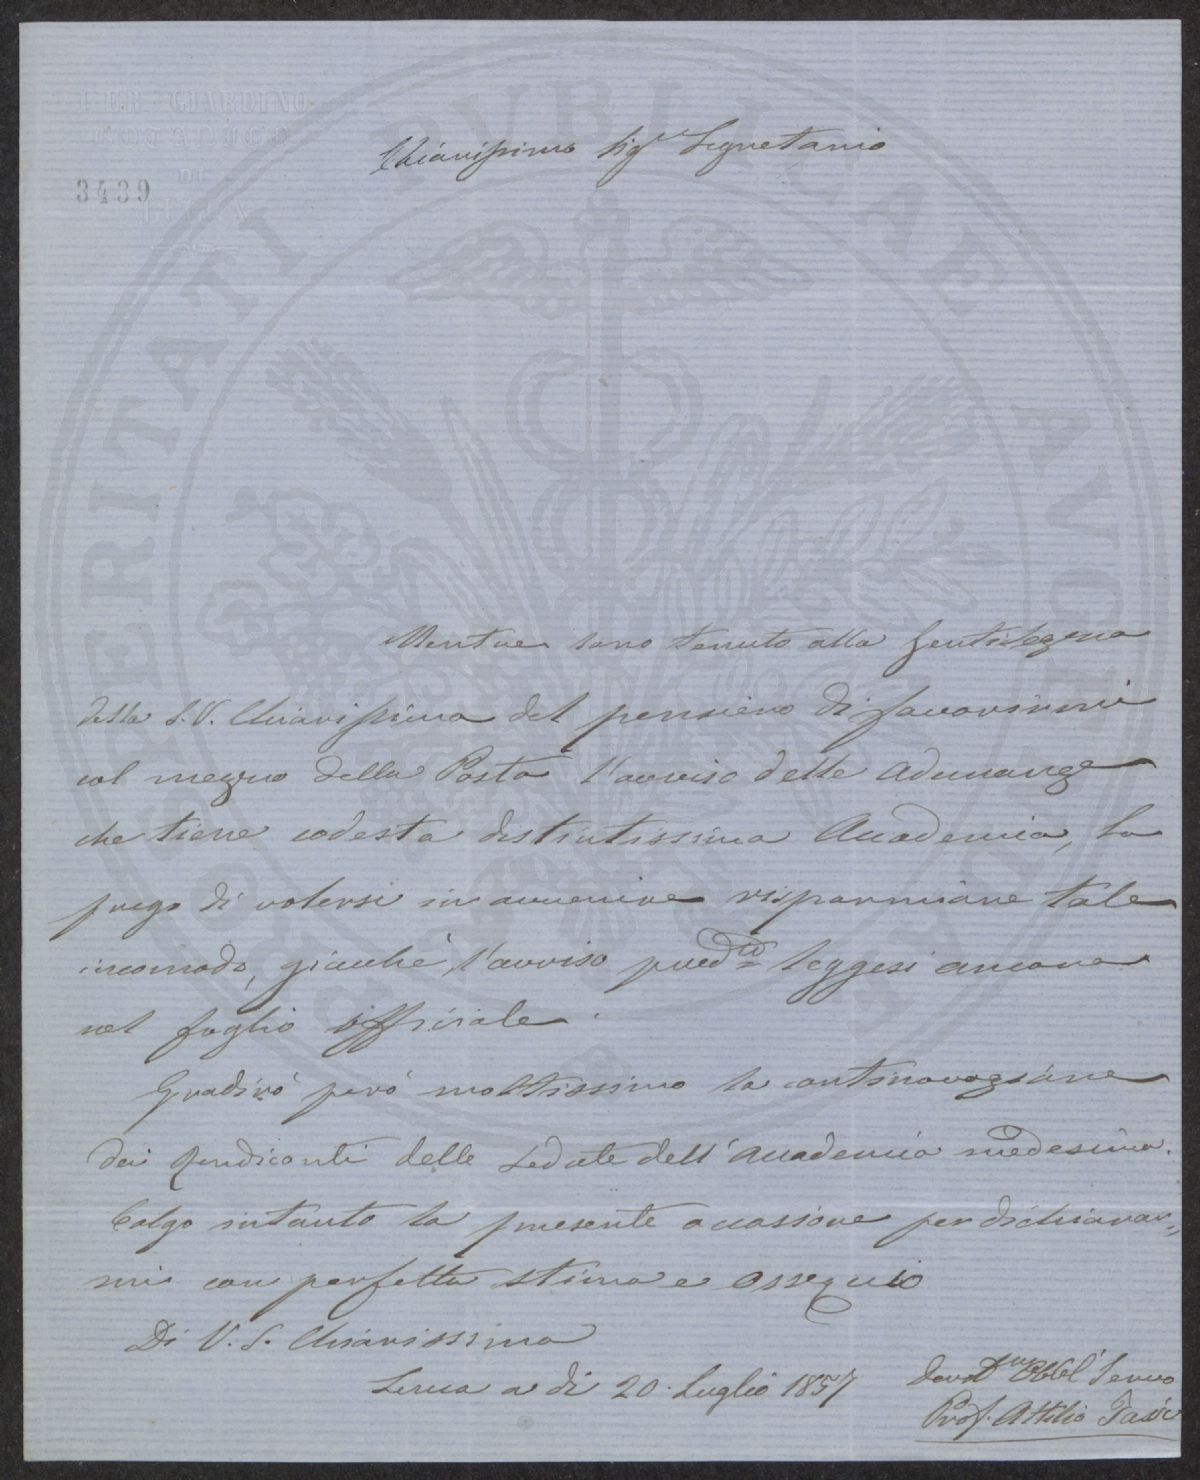 I. ER. GIARDINO
BOTANICO
DI
LUCCA
3439
PROSPERITATI PVBLICAE AVGENDAE
Chiarissimo Sigre Segretario
Mentre sono tenuto alla gentilezza
della S. V. Chiarissima del pensiero di favorirmi
col mezzo della Posta l'avviso delle adunanze
che tiene codesta distintissima Accademia, La
prego di volersi in avvenire risparmiare tale
incomodo, giacchè l'avviso predto leggesi ancora
nel foglio officiale.
Gradirò però moltissimo la continovazione
dei Rendiconti delle sedute dell'Accademia medesima.
Colgo intanto la presente occasione per dichiarar=
mi con perfetta stima e ossequio
Di V. S. Chiarissima
Lucca a dì 20. Luglio 1857
Devotmo Obbl Servo
Prof. Attilio Tassi